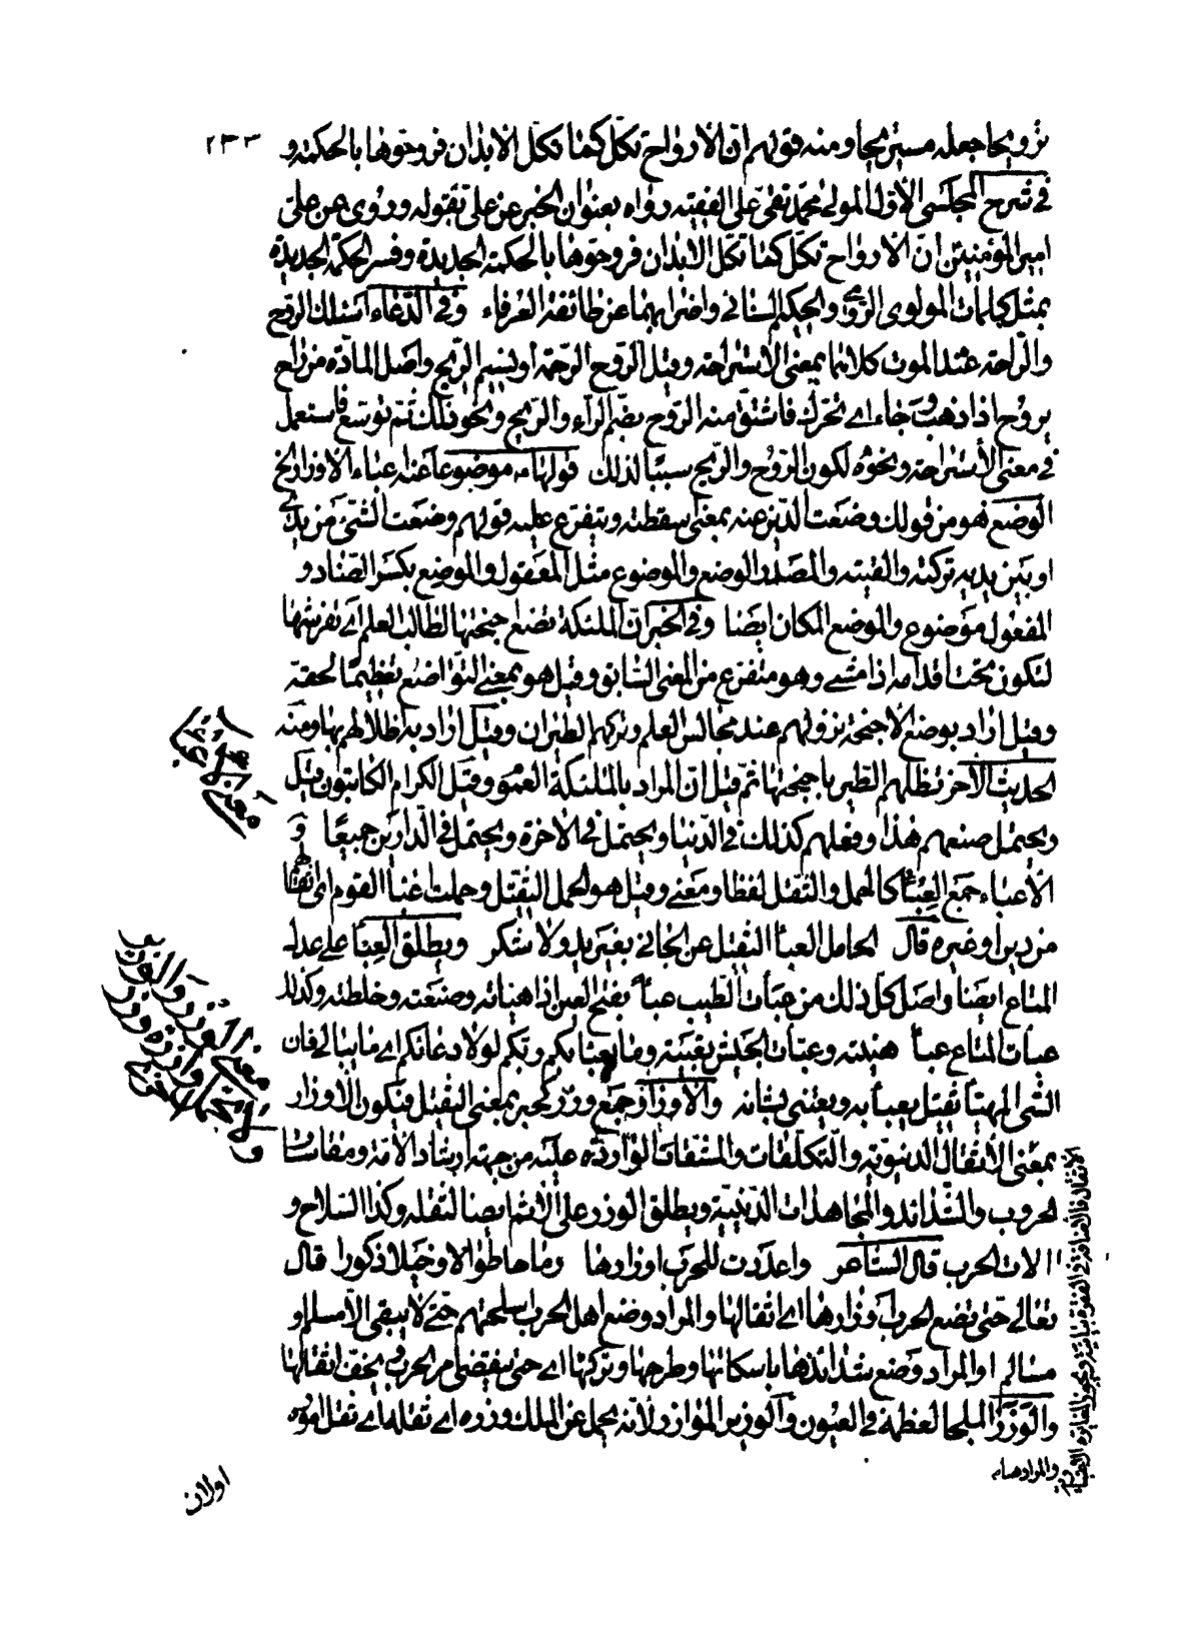 ٢٣٣
ترويحا جعله مستريحا ومنه قولهم ان الارواح تكل كما تكل الابدان فروحوها بالحكمة و
في شرح المجلسي الأول المولى محمد تقي على الفقيه رواه بعنوان الخبر عن علي بقوله وروى عن علي
امير المؤمنين ان الارواح تكل كما تكل الابدان فروحوها بالحكمة الجديدة وفسر الحكمة الجديدة
بمثل كلمات المولوي الرومي والحكيم السنائي واضرابهما عن طائفة العرفاء وفي الدعاء اسئلك الروح
والراحة عند الموت كلاهما بمعنى الاستراحة وقيل الروح الرحمة او نسيم الريح واصل المادة من راح
يروح اذا ذهب وجاء اي تحرك فاشتق منه الروح بضم الراء والريح ونحو ذلك ثم توسع فاستعمل
في معنى الأستراحة ونحوه لكون الروح والريح سببا لذلك قولها ء موضوعا عنه عباء الاوزار الخ
الوضع هو من قولك وضعت الدين عنه بمعنى اسقطته ويتفرع عليه قولهم وضعت الشئ من يدي
او بين يديه تركته والقيته والمصدر الوضع والموضوع مثل المعقول والموضع بكسر الضاد و
المفعول موضوع والموضع المكان ايضا وفي الخبر ان الملئكة تضع اجنحتها لطالب العلم اي تفرشها
لتكون تحت اقدامه اذا مشى وهو متفرع من المعنى السابق وقيل هو بمعنى التواضع تعظيما لحقه
وقيل اراد بوضع الاجنحة نزولهم عند مجالس العلم وتركهم الطيران وقيل اراد به اظلالهم بها ومنه
الحديث الآخر تظلهم الطير باجنحتها ثم قيل ان المراد بالملئكة العموم وقيل الكرام الكاتبون قيل
ويحتمل صنعهم هذا وفعلهم كذلك في الدنيا ويحتمل في الآخرة ويحتمل في الدارين جميعا و
الأعباء جمع العبأ كالحمل والثقل لفظا ومعنى وقيل هو الحمل الثقيل وحملت اعباء القوم اي اثقالهم
من دين او غيره قال الحامل العبأ الثقيل عن الجاني بغير يد ولا شكر ويطلق العبأ على عدل
المتاع ايضا واصل كل ذلك من عبأت الطيب عبأ بفتح العين اذا هيأته وصنعته وخلطته وكذلك
عبأت المتاع عبأ هيئته وعبأت الجيش تعبية وما يعبأ بكم ربكم لولا دعائكم اي ما يبالي فان
الشئ المهيأ ثقيل يعبأ به ويعتنى بشانه والاوزار جمع وزر كحبر بمعنى الثقيل فيكون الاوزار
بمعنى الأثقال الدنيوية والتكلفات والمشقات الواردة عليه من جهة ارشاد الامة ومقاسات
الحروب والشدائد والمجاهدات الدينية ويطلق الوزر على الاثم ايضا لثقله وكذا السلاح و
الات الحرب قال الشاعر واعددت للحرب اوزارها رماحا طوالا وخيلا ذكورا قال
تعالى حتى تضع الحرب اوزارها اي اثقالها والمراد وضع اهل الحرب اسلحتهم حتى لا يبقى الا مسلم او
مسالم او المراد وضع شدائدها باسكانها وطرحها وتركها اي حتى ينقضي امر الحرب ويخف اثقالها
والوزر الملجا لعظمة في العيون والوزير الموازر لانه يحمل عن الملك وزره اي ثقله اي ثقل اموره
معنى عبأ
معنى الوزر والوزير
اولان
والمراد هنا